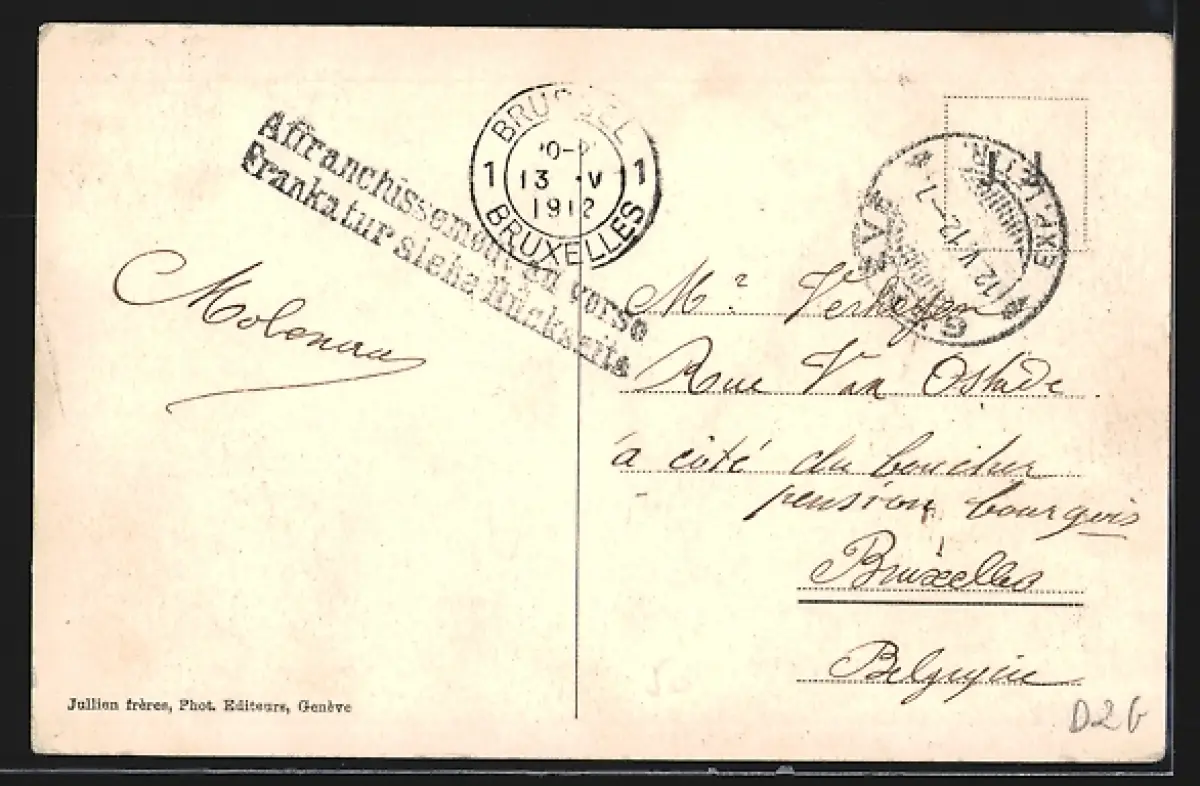 Affranchissement au verso
Frankatur siehe Rückseite
BRUSSEL
1 13 V 1
1912
BRUXELLES
EXP. LETTR.
12.V.12–7
GENÈVE
Molenaar
Mr Verheyen
Rue Van Ostade
à côté du boucher
pension bourgois
Bruxelles
Belgique
Jullien frères, Phot. Editeurs, Genève
D26